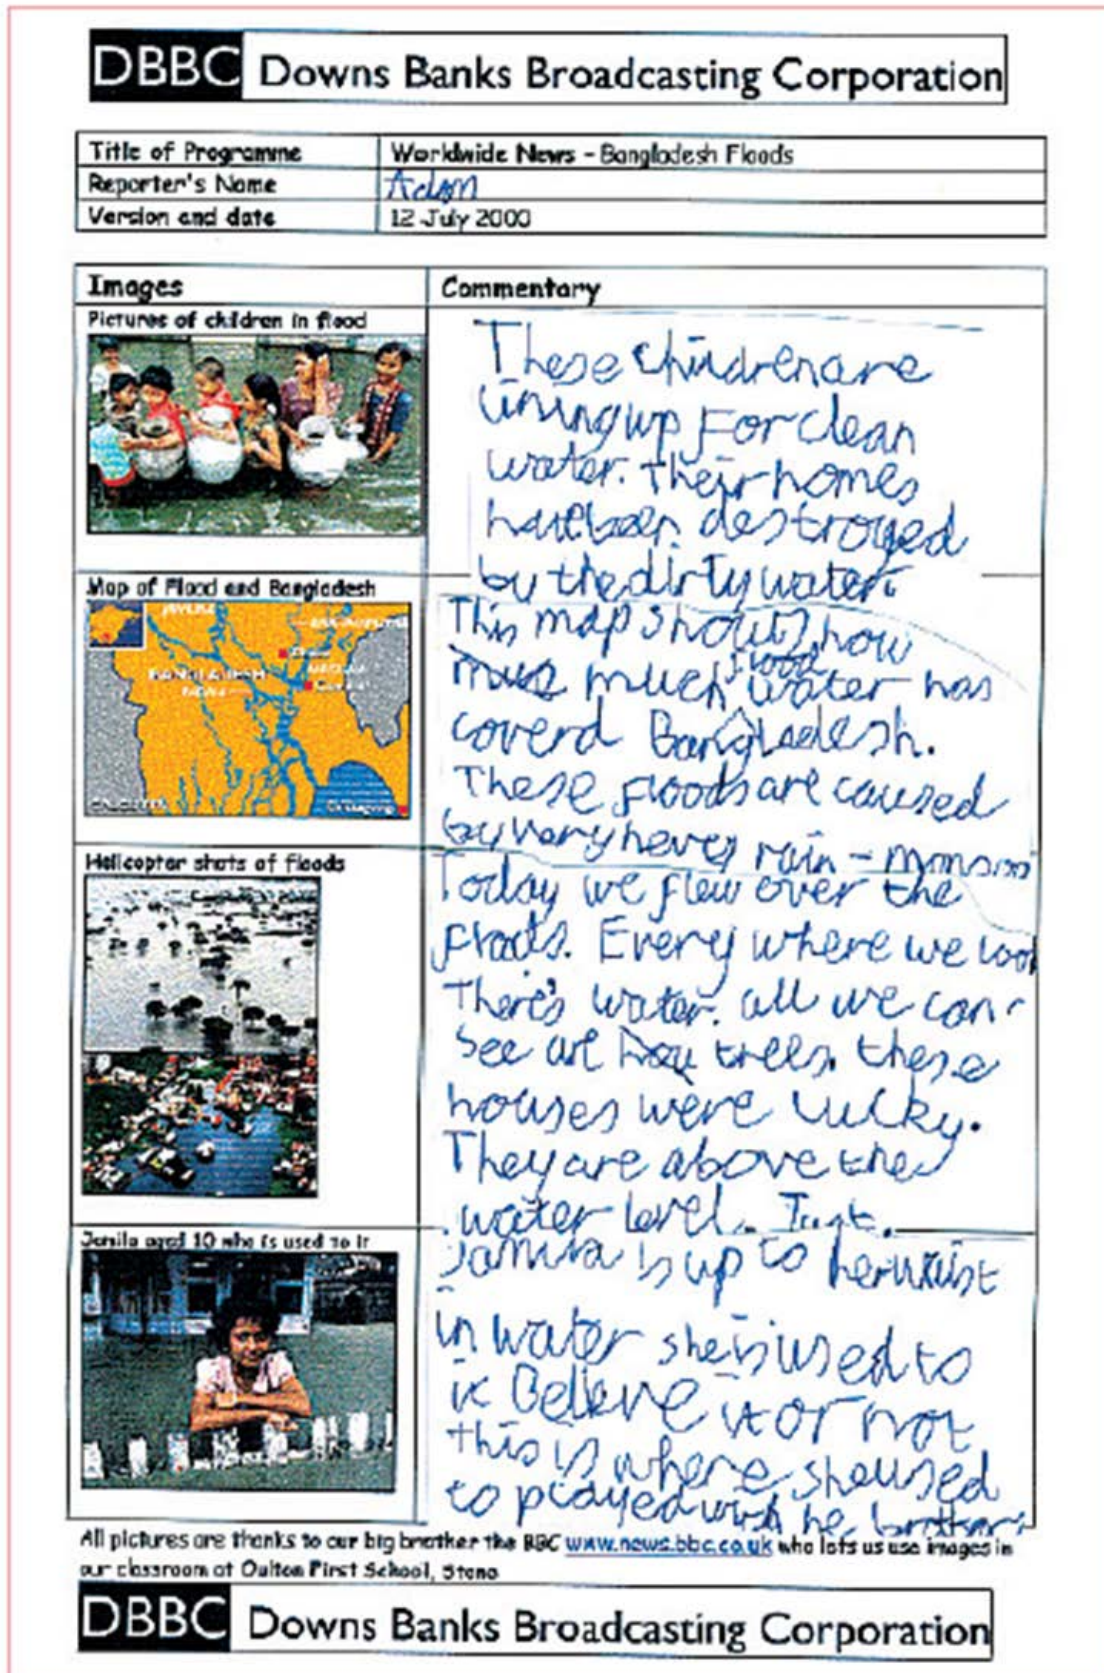 DBBC Downs Banks Broadcasting Corporation
Title of Programme Worldwide News - Bangladesh Floods
Reporter's Name Adam
Version and date 12 July 2000
Images Commentary
Pictures of children in flood
These children are
lining up For clean
water. their homes
have been destroyed
by the dirty water.
Map of Flood and Bangladesh
BANGLADESH
CALCUTTA
This map shows how
much flood water has
coverd Bangladesh.
These floods are caused
by very hevey rain - monsoon
Helicopter shots of floods
Today we flew over the
floods. Every where we look
There's water. all we can
see are trees. these
houses were lucky.
They are above the
water level. Just.
Jamila aged 10 who is used to it
Jamila is up to her waist
in water she is used to
it Believe it or not
this is where she used
to played with her brothers
All pictures are thanks to our big brother the BBC www.news.bbc.co.uk who lets us use images in
our classroom at Oulton First School, Stone
DBBC Downs Banks Broadcasting Corporation